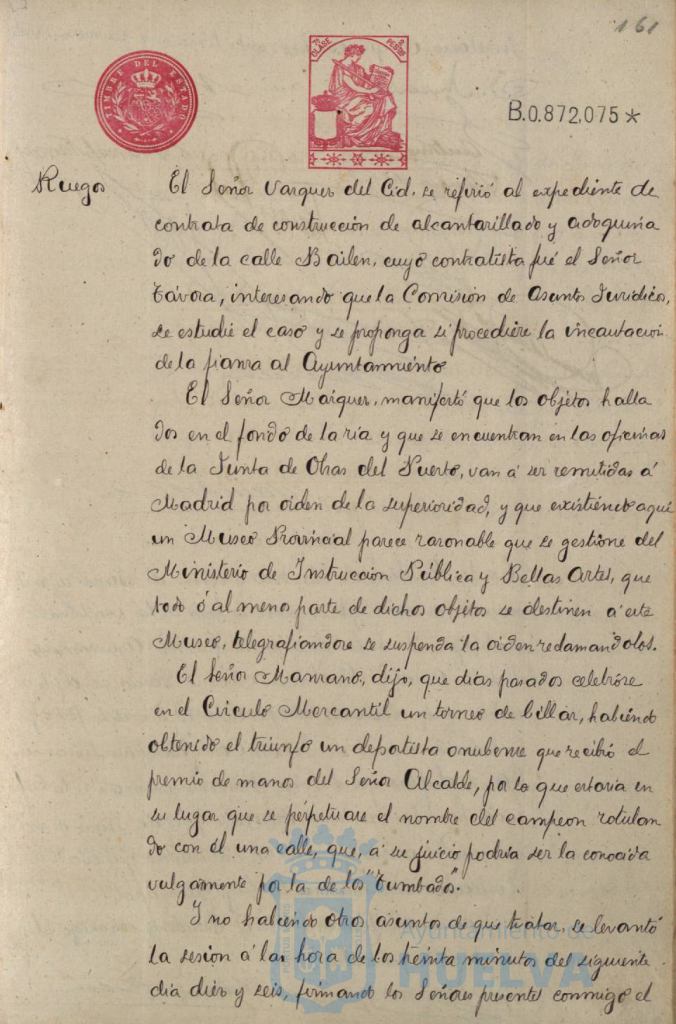 161
TIMBRE DEL ESTADO
7ª CLASE
2 PESETAS
B.0.872,075*
Ruegos
El Señor Vazquez del Cid, se refirió al expediente de
contrata de construcción de alcantarillado y adoquina
do de la calle Bailen, cuyo contratista fué el Señor
Távora, interesando que la Comisión de Asuntos Jurídicos,
se estudie el caso y se proponga si procediere la incautación
de la fianza al Ayuntamiento
El Señor Maiquez, manifestó que los objetos halla
dos en el fondo de la ría y que se encuentran en las oficinas
de la Junta de Obras del Puerto, van á ser remitidas á
Madrid por orden de la superioridad, y que existiendo aquí
un Museo Provincial parece razonable que se gestione del
Ministerio de Instrucción Pública y Bellas Artes, que
todo ó al menos parte de dichos objetos se destinen á este
Museo, telegrafiandose se suspenda la orden reclamandolos.
El Señor Manzano, dijo, que días pasados celebróse
en el Circulo Mercantil un torneo de billar, habiendo
obtenido el triunfo un deportista onubense que recibió el
premio de manos del Señor Alcalde, por lo que estaria en
su lugar que se perpetuase el nombre del campeon rotulan
do con él una calle, que, á su juicio podria ser la conocida
vulgamente por la de los "Tumbados".
Y no habiendo otros asuntos de que tratar, se levantó
la sesion á las hora de los treinta minutos del siguiente
dia diez y seis, firmando los Señores presentes conmigo el
Ayuntamiento de
HUELVA